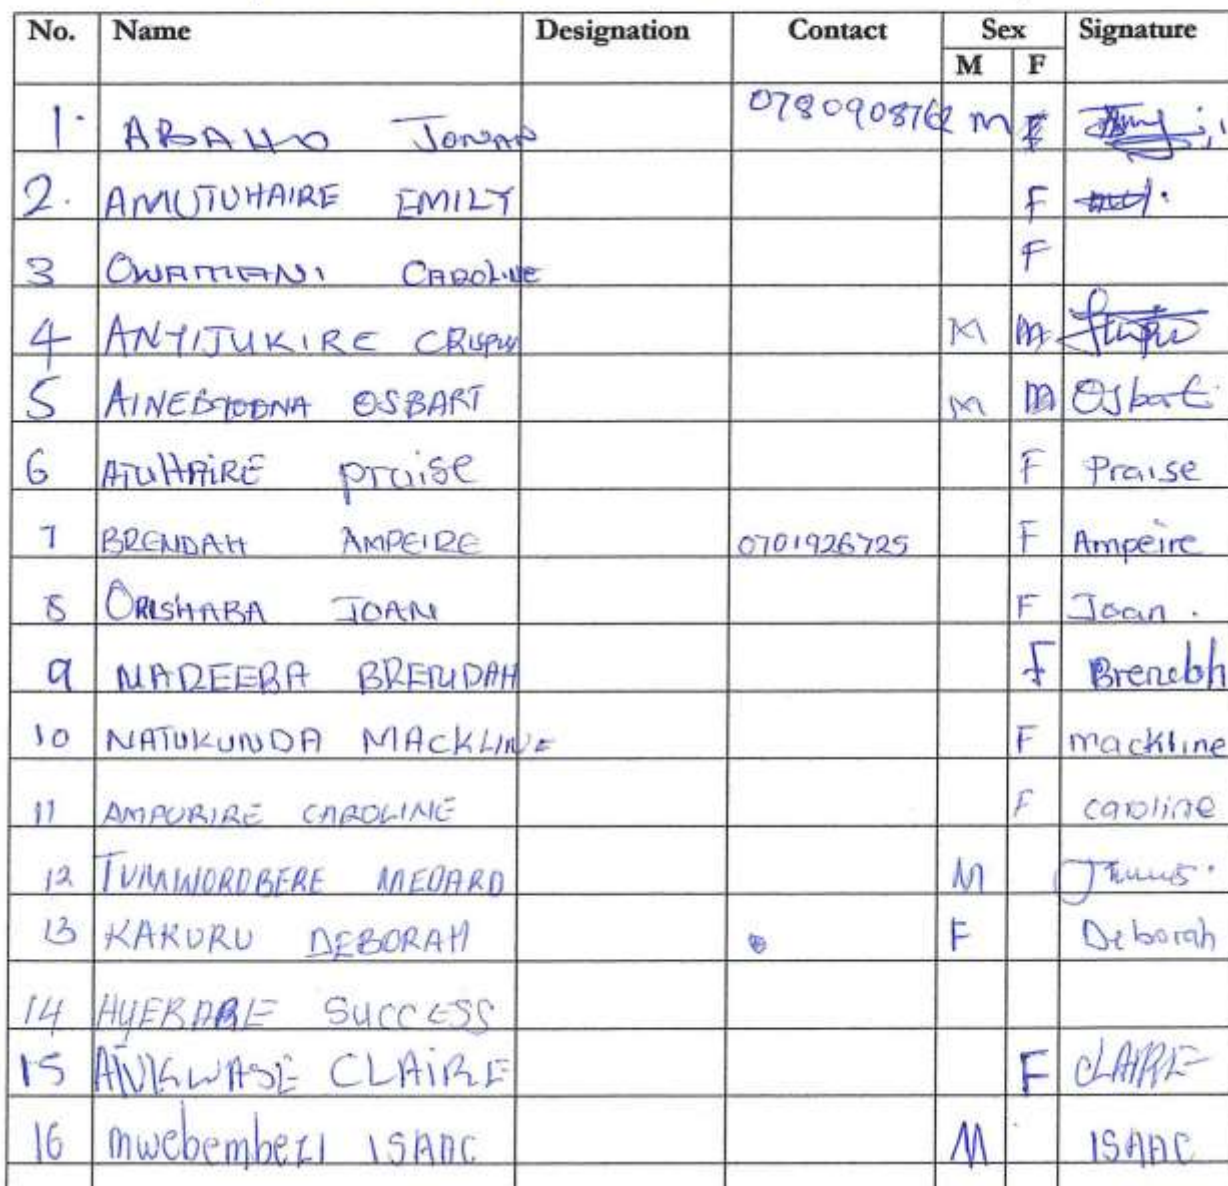 No. Name Designation Contact Sex Signature
M F
1. ABAHO JONAN 0780908762 M F
2. AMUTUHAIRE EMILY F
3 OWAMANI CAROLINE F
4 ANYIJUKIRE CRISPUS M M
5 OSBART M M Osbart
6 ATUHAIRE praise F Praise
7 BRENDAH AMPEIRE 0701926725 F Ampeire
8 ORISHABA JOAN F Joan.
9 NAREEBA BRENDAH F Brendah
10 NATUKUNDA MACKLINE F mackline
11 AMPURIRE CAROLINE F caroline
12 MEDARD M
13 KAKURU DEBORAH F Deborah
14 SUCCESS
15 ANKWASE CLAIRE F CLAIRE
16 mwebembezi ISAAC M ISAAC